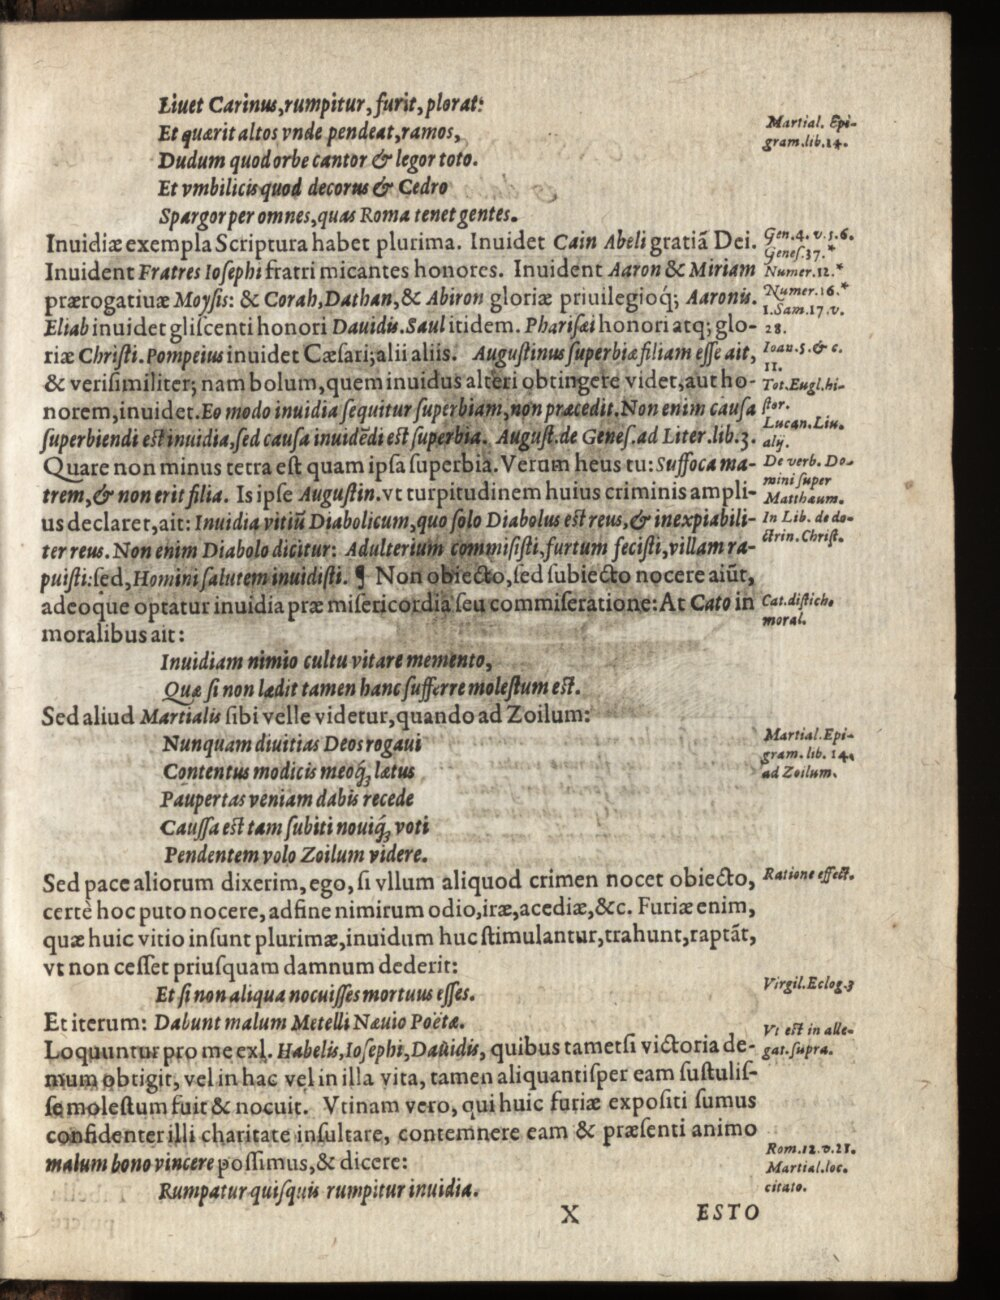 Liuet Carinus, rumpitur, furit, plorat:
Et quærit altos vnde pendeat, ramos,
Dudum quod orbe cantor & legor toto.
Et vmbilicis quod decorus & Cedro
Spargor per omnes, quas Roma tenet gentes.
Martial. Epi-
gram. lib. 14.
Inuidiæ exempla Scriptura habet plurima. Inuidet Cain Abeli gratiã Dei.
Inuident Fratres Iosephi fratri micantes honores. Inuident Aaron & Miriam
prærogatiuæ Moysis: & Corah, Dathan, & Abiron gloriæ priuilegioq́; Aaronis.
Eliab inuidet gliscenti honori Dauidis. Saul itidem. Pharisæi honori atq; glo-
riæ Christi. Pompeius inuidet Cæsari; alii aliis. Augustinus superbiæ filiam esse ait,
& verisimiliter; nam bolum, quem inuidus alteri obtingere videt, aut ho-
norem, inuidet. Eo modo inuidia sequitur superbiam, non præcedit. Non enim causa
superbiendi est inuidia, sed causa inuidẽdi est superbia. August. de Genes. ad Liter. lib. 3.
Quare non minus tetra est quam ipsa superbia. Verum heus tu: Suffoca ma-
trem, & non erit filia. Is ipse Augustin. vt turpitudinem huius criminis ampli-
us declaret, ait: Inuidia vitiũ Diabolicum, quo solo Diabolus est reus, & inexpiabili-
ter reus. Non enim Diabolo dicitur: Adulterium commisisti, furtum fecisti, villam ra-
puisti: sed, Homini salutem inuidisti. ¶ Non obiecto, sed subiecto nocere aiũt,
adeoque optatur inuidia præ misericordia seu commiseratione: At Cato in
moralibus ait:
Gen. 4. v. 5. 6.
Genes. 37. *
Numer. 12. *
Numer. 16. *
1. Sam. 17. v.
28.
Ioan. 5. & c.
11.
Tot. Eugl. hi-
stor.
Lucan. Liu.
alij.
De verb. Do-
mini super
Matthæum.
In Lib. de do-
ctrin. Christ.
Cat. distich.
moral.
Inuidiam nimio cultu vitare memento,
Quæ si non lædit tamen hanc sufferre molestum est.
Sed aliud Martialis sibi velle videtur, quando ad Zoilum:
Nunquam diuitias Deos rogaui
Contentus modicis meoq́ꝫ lætus
Paupertas veniam dabis recede
Caussa est tam subiti nouiq́ꝫ voti
Pendentem volo Zoilum videre.
Martial. Epi-
gram. lib. 14.
ad Zoilum.
Sed pace aliorum dixerim, ego, si vllum aliquod crimen nocet obiecto,
certè hoc puto nocere, adfine nimirum odio, iræ, acediæ, &c. Furiæ enim,
quæ huic vitio insunt plurimæ, inuidum huc stimulantur, trahunt, raptãt,
vt non cesset priusquam damnum dederit:
Ratione effect.
Et si non aliqua nocuisses mortuus esses.
Virgil. Eclog. 3
Et iterum: Dabunt malum Metelli Næuio Poëtæ.
Loquuntur pro me exl. Habelis, Iosephi, Dauidis, quibus tametsi victoria de-
mum obtigit, vel in hac vel in illa vita, tamen aliquantisper eam sustulis-
se molestum fuit & nocuit. Vtinam vero, qui huic furiæ expositi sumus
confidenter illi charitate insultare, contemnere eam & præsenti animo
malum bono vincere possimus, & dicere:
Vt est in alle-
gat. supra.
Rumpatur quisquis rumpitur inuidia.
Rom. 12. v. 21.
Martial. loc.
citato.
X ESTO